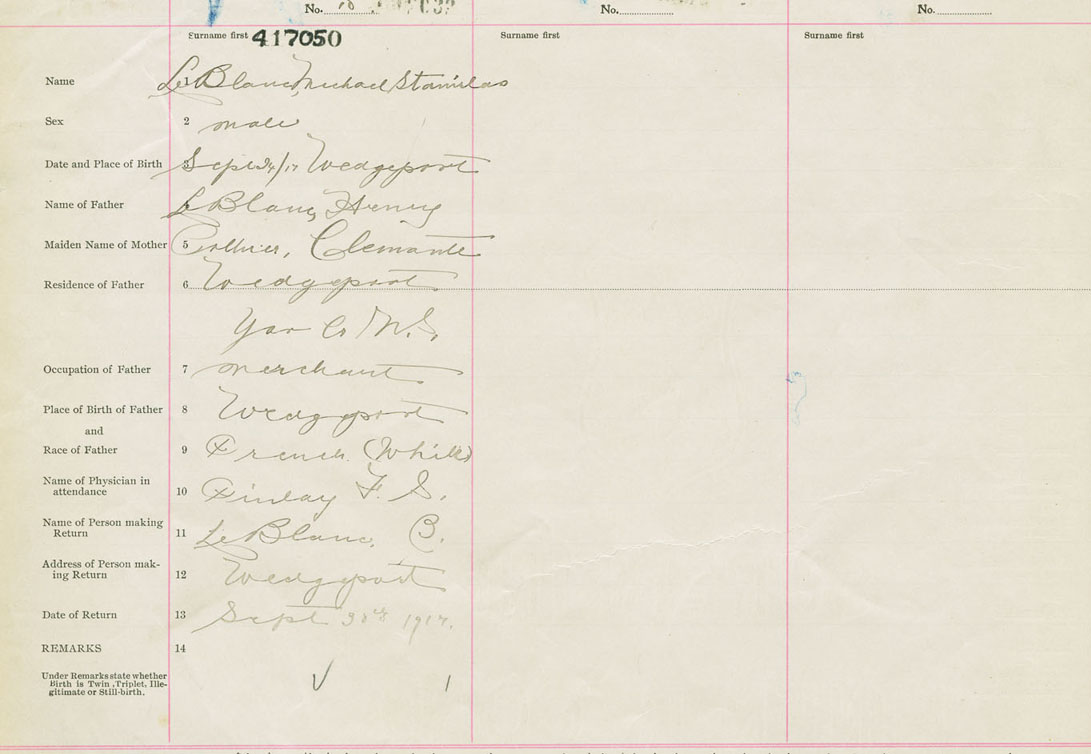 No. No. No.
Surname first 417050 Surname first Surname first
Name 1 LeBlanc, Michael Stanislas
Sex 2 male
Date and Place of Birth 3 Sept 24/17 Wedgeport
Name of Father 4 LeBlanc, Henry
Maiden Name of Mother 5 Clemante
Residence of Father 6 Wedgeport
Yar Co N.S.
Occupation of Father 7 merchant
Place of Birth of Father 8 Wedgeport
and
Race of Father 9 French (White)
Name of Physician in
attendance 10 Finlay F. S.
Name of Person making
Return 11 LeBlanc, B.
Address of Person mak-
ing Return 12 Wedgeport
Date of Return 13 Sept 30th 1917.
REMARKS 14
Under Remarks state whether
Birth is Twin, Triplet, Ille-
gitimate or Still-birth.